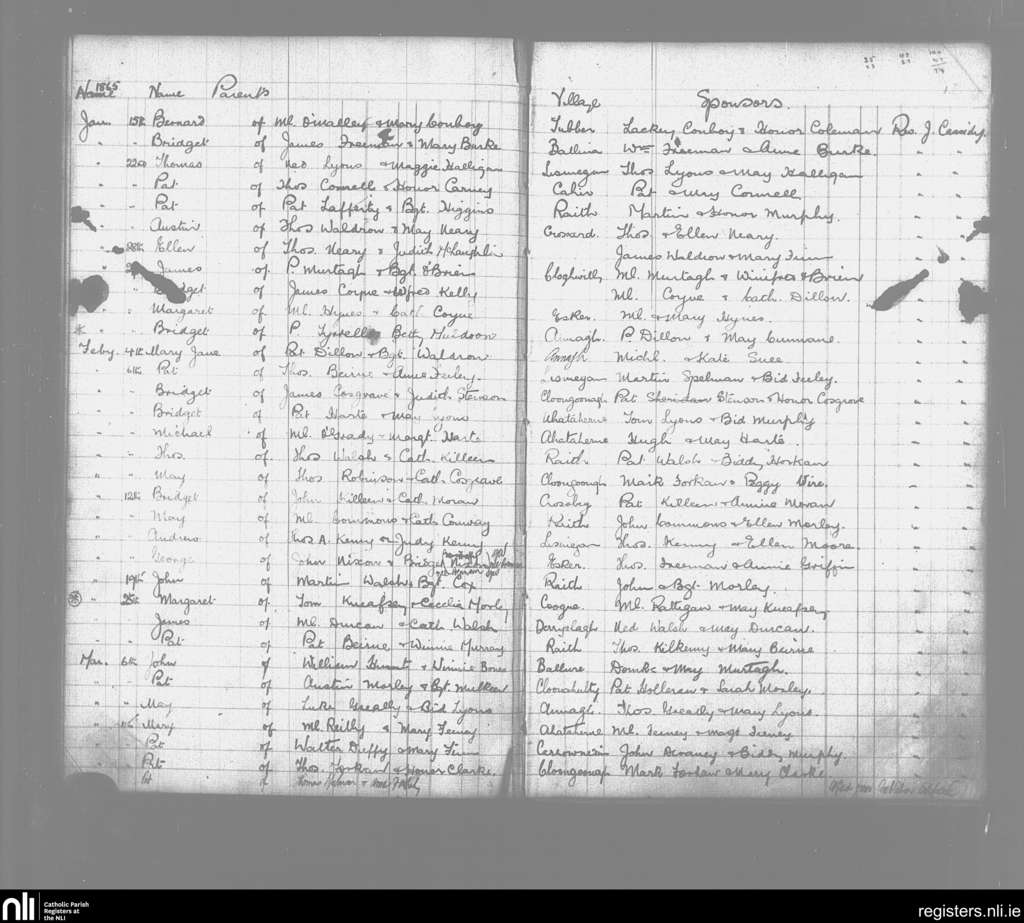 1865
Name Name Parents Village Sponsors.
Jan. 15th Bernard of Ml. O'Malley & Mary Conboy Tubber Lackey Conboy & Honor Coleman Rev. J. Cassidy.
" " Bridget of James Freeman & Mary Burke Ballina Wm Freeman & Anne Burke. " "
" 22nd Thomas of Ned Lyons & Maggie Halligan Lismegan Thos Lyons & May Halligan " "
" " Pat of Thos Connell & Honor Carney Cahir Pat & Mary Connell " "
" " Pat of Pat Lafferty & Bgt. Higgins Raith Martin & Honor Murphy. " "
" " Austin of Thos Waldron & May Neary Crossard. Thos. & Ellen Neary. " "
" 28th Ellen of Thos. Neary & Judith McLaughlin James Waldron & Mary Finn
" James of P. Murtagh & Bgt. O'Brien Ml. Murtagh & Winifred O'Brien
of James Coyne & Wfred Kelly Ml. Coyne & Cath. Dillon.
" " Margaret of Ml. Hynes & Cath Coyne Esker Ml. & Mary Hynes.
" Bridget of P. Betty Annagh. P. Dillon & May Cunnane.
Feby. 4th Mary Jane of Pat Dillon & Bgt. Waldron Annagh Michl. & Kate
" 6th Pat of Thos. Beirne & Anne Feeley. Lismegan Martin Spelman & Bid Feeley.
" " Bridget of James Cosgrave & Judith Stenson Cloongoonagh Pat Sheridan Stenson & Honor Cosgrove
" " Bridget of Pat Harte & May Lyons Ahataherne Tom Lyons & Bid Murphy
" " Michael of Ml. O'Grady & Margt. Harte Ahataherne Hugh & May Harte
" " Thos. of Thos Walsh & Cath. Killeen Raith Pat Walsh & Biddy Horkan
" " May of Thos Robinson & Cath. Cosgrave Cloongoonagh Mark Forkan & Peggy
" 12th Bridget of John Killeen & Cath. Moran Crossbeg Pat Killeen & Annie Moran
" " May of Ml. Commons & Cath Conway Raith John Commons & Ellen Morley.
" " Andrew of Thos A. Kenny & Judy Kenny Lismegan Thos. Kenny & Ellen Moore.
" " George of John Nixon & Bridget Esker. Thos. Freeman & Annie Griffin
" 19th John of Martin Walsh & Bgt. Cox Raith John & Bgt. Morley
" 25th Margaret of Tom Kneafsey & Cecelia Morley Coogue Ml. Rattigan & May Kneafsey
" James of Ml. Duncan & Cath Walsh Derrylagh Ned Walsh & May Duncan.
" " Pat of Pat Beirne & Winnie Murray Raith Thos. Kilkenny & Mary Beirne
Mar. 6th John of William & Winnie Ballure Domk. & May Murtagh.
" " Pat of Austin Morley & Bgt. Mulkeen Pat Holleran & Sarah Morley.
" " May of Luke Greally & Bid Lyons Annagh. Thos Greally & Mary Lyons.
" Mary of Ml. Reilly & Mary Feeney Ahataherne Ml. Feeney & Magt Feeney
" " Pat of Walter Duffy & Mary Finn John & Biddy Murphy.
" " Pat of Thos. Forkan & Honor Clarke. Cloongoonagh Mark Forkan & Mary Clarke
Pat of Thomas
nli
Catholic Parish
Registers at
the NLI
registers.nli.ie